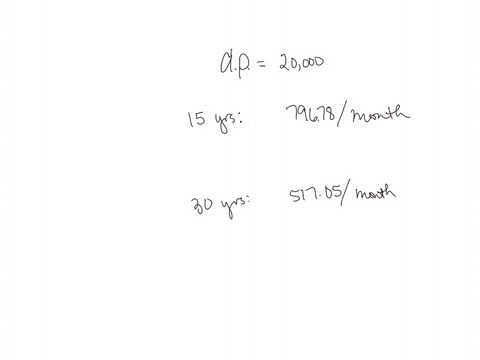 d.p. = 20,000
15 yrs: 796.78/month
30 yrs: 517.05/month